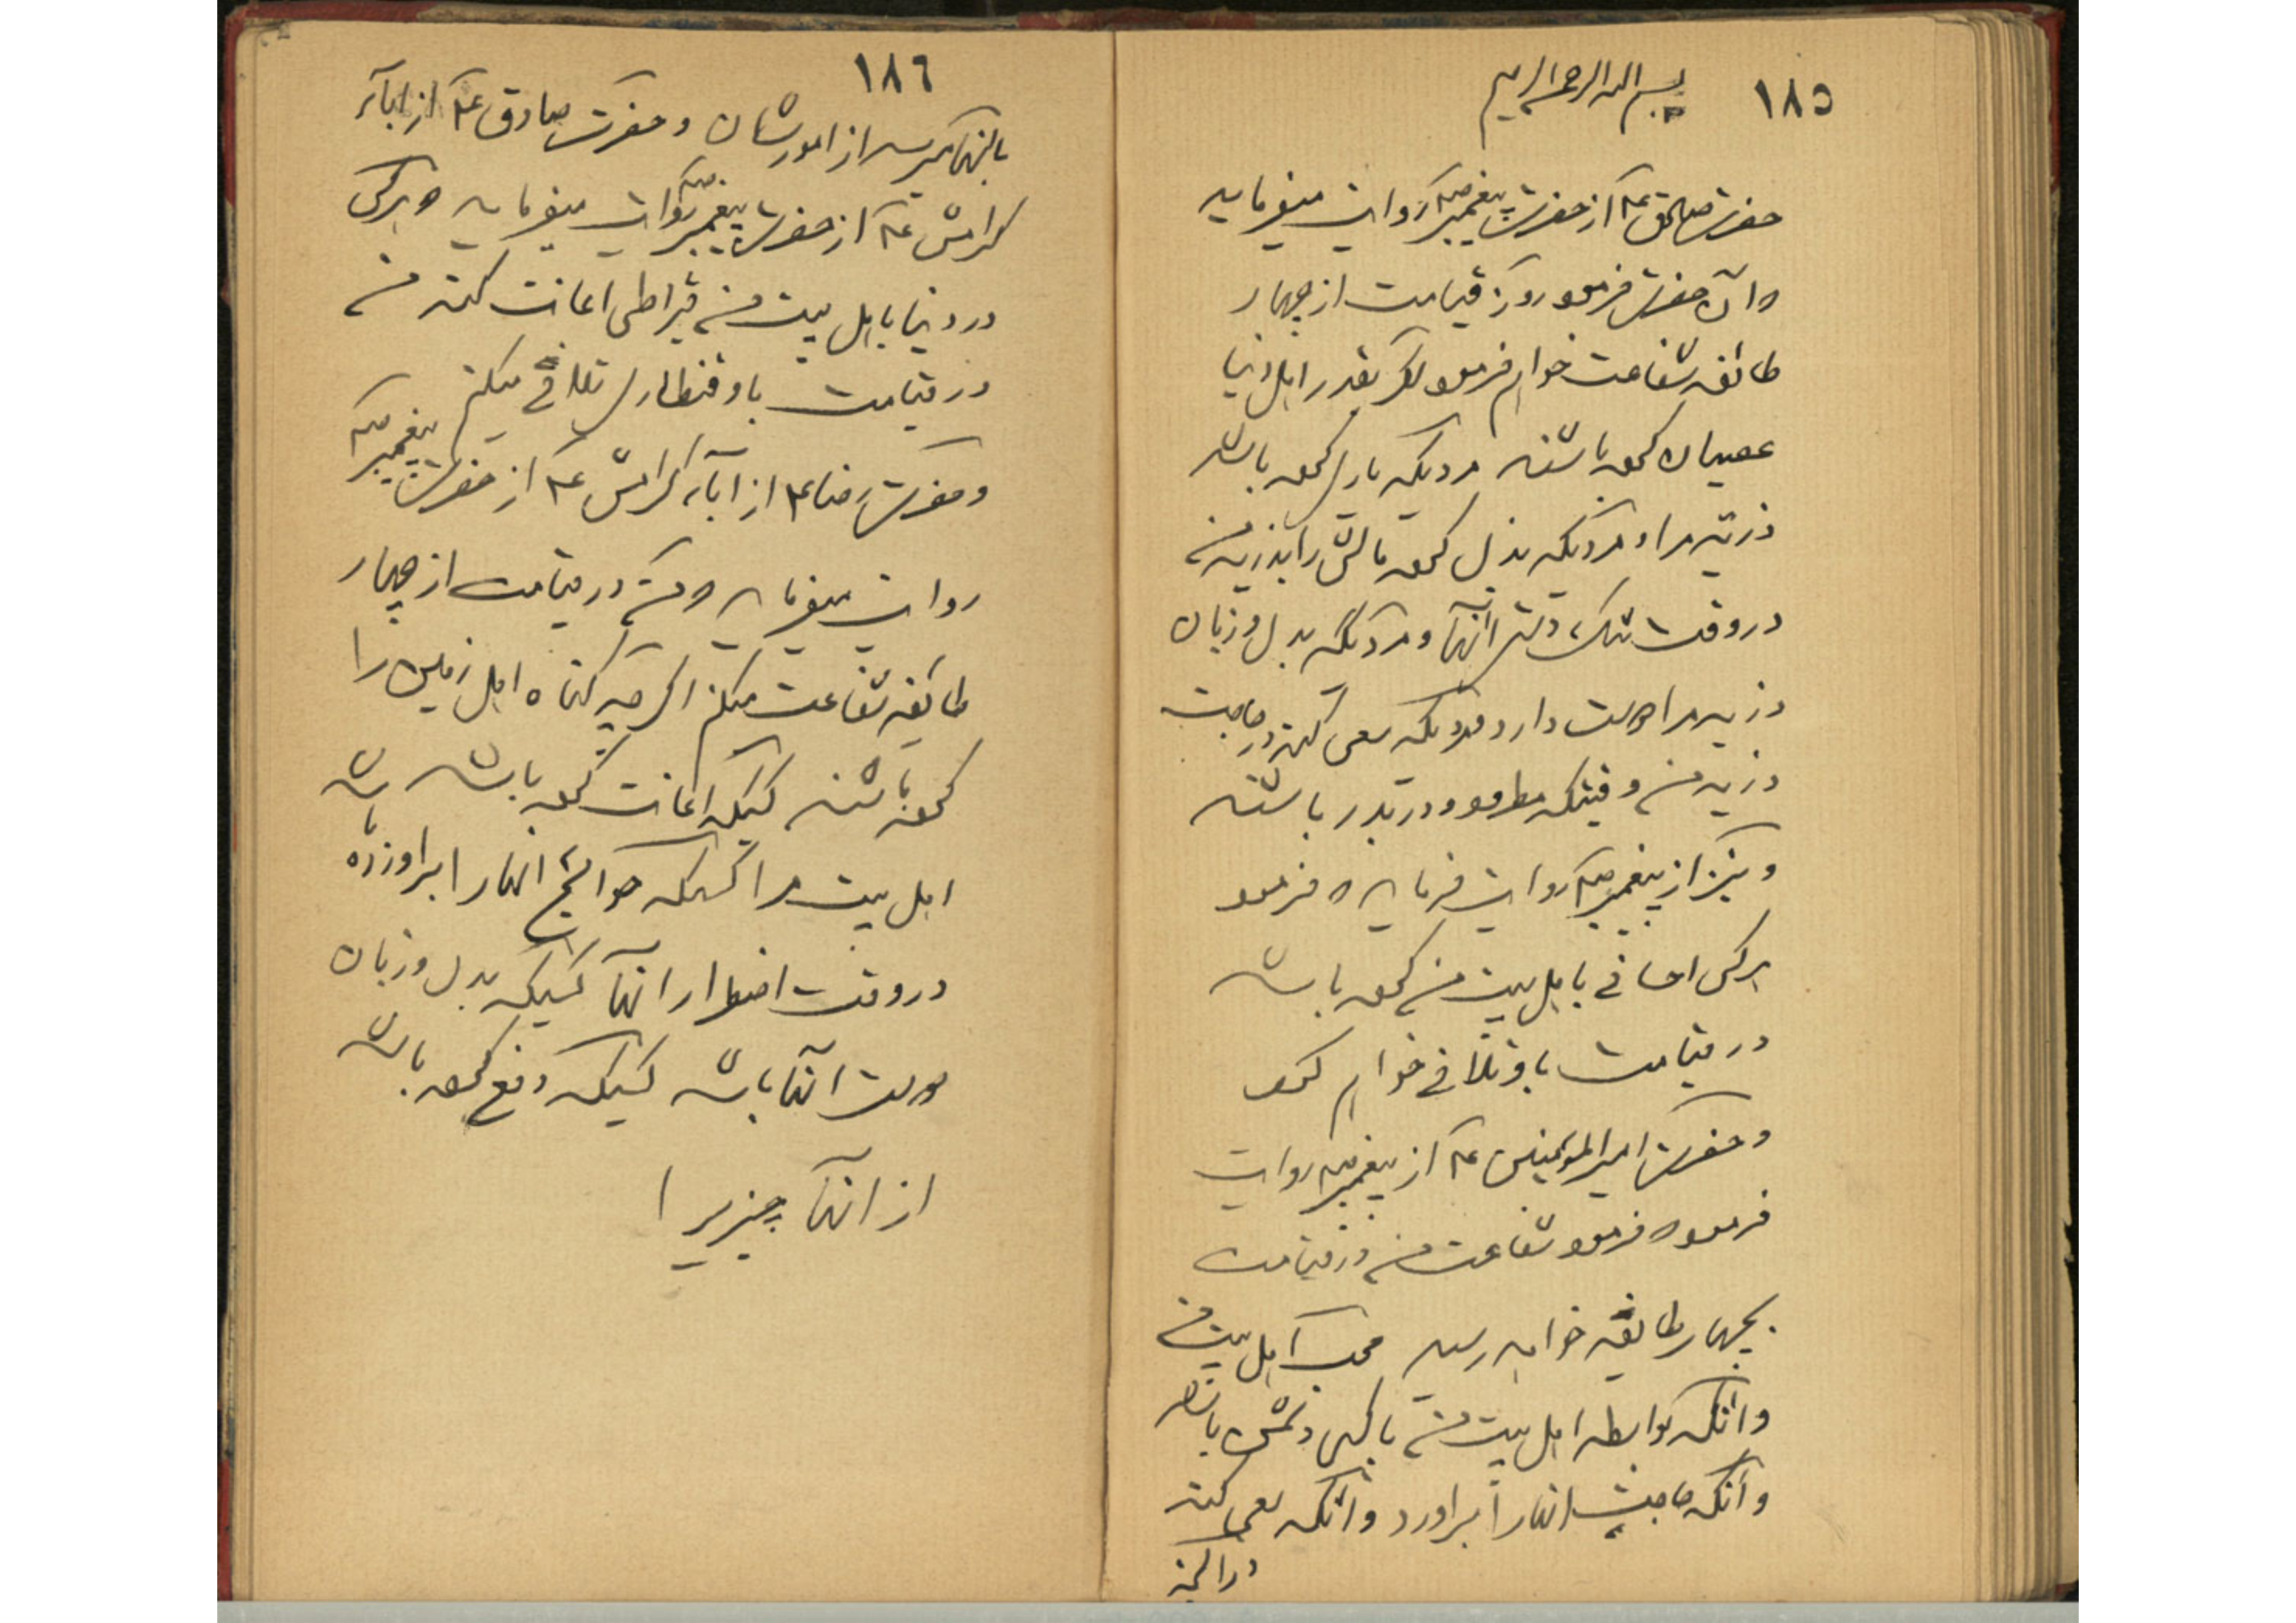 ١٨٥
بسم الله الرحمن الرحیم
حضرت صادق ع از حضرت پیغمبر ص روایت میفرماید
که آن حضرت فرمود روز قیامت از چهار
طائفه شفاعت خواهم فرمود اگر بقدر اهل دنیا
عصیان کرده باشند مردیکه یاری کرده باشد
ذریه مرا و مردیکه بذل کرده مالش را بذریه من
در وقت تنگ دستی آنها و مردیکه بدل و زبان
ذریه مرا دوست دارد و مردیکه سعی کند در حاجت
ذریه من وقتیکه مطرود و دربدر باشند
و نیز از پیغمبر ص روایت فرماید که فرمود
هر کس احسانی با اهل بیت من کرده باشد
در قیامت با و تلافی خواهم کرد
و حضرت امیر المؤمنین ع از پیغمبر ص روایت
فرمود که فرمود شفاعت من در قیامت
بچهار طایفه خواهد رسید محب اهل بیت من
و آنکه بواسطه اهل بیت من با کسی دشمن باشد
و آنکه حاجت آنها را برآورد و آنکه سعی کند
در آنچه
١٨٦
بآنها میرسد از امورشان و حضرت صادق ع از اباء
کرامش ع از حضرت پیغمبر ص روایت میفرماید که هر کس
در دنیا با اهل بیت من قیراطی اعانت کند من
در قیامت با و قنطاری تلافی میکنم
و حضرت رضا ع از آباء کرامش ع از حضرت پیغمبر ص
روایت میفرماید که من در قیامت از چهار
طائفه شفاعت میکنم اگر چه گناه اهل زمین را
کرده باشند کسیکه اعانت کرده باشد
اهل بیت مرا کسیکه حوائج آنها را برآورده باشد
در وقت اضطرار آنها کسیکه بدل و زبان
دوست آنها باشد کسیکه دفع کرده باشد
از آنها چیزیرا